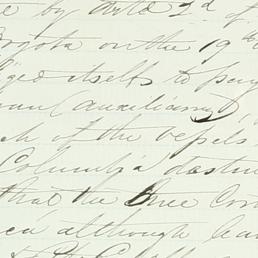 by Arte 2d of
Bogota on the 19th
ged itself to pay
(auxiliary)
of the vessels
Columbia destin
that the three Cor
although